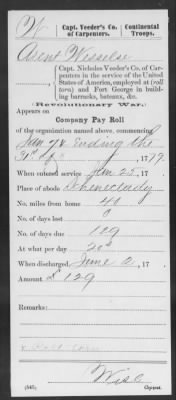 W | Capt. Veeder's Co. of Carpenters. | Continental Troops.
Arent Wesselse
Capt. Nicholas Veeder's Co. of Carpenters in the service of the United States of America, employed at (roll torn) and Fort George in building barracks, bateaux, &c.
(Revolutionary War.)
Appears on
Company Pay Roll
of the organization named above, commencing
Jan 7 & Ending the
31st, 1779.
When entered service Jan 25, 17
Place of abode Schenectady
No. miles from home 40
No. of days lost 0
No. of days due 129
At what per day 20s
When discharged June 2, 17
Amount £ 129
Remarks:
Wise
(545) Copyist.